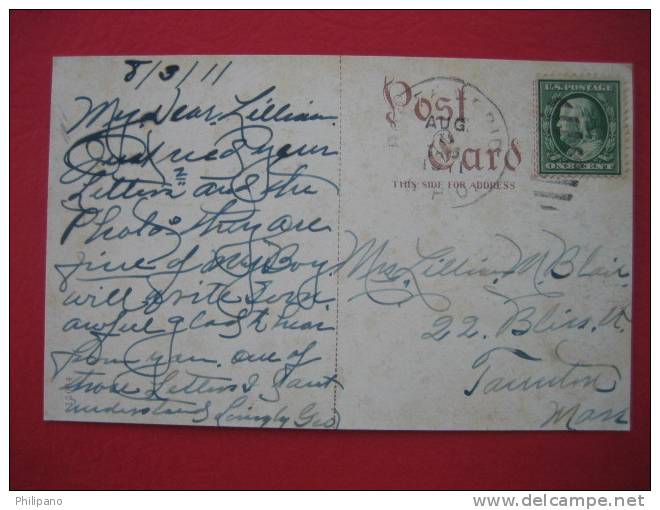 8/3/11
My Dear Lillian
Just rec'd your
Letters 2 and the
Photos they are
fine of My Boy
will write soon
awful glad to hear
from you. one of
those Letters I dont
understand Lovingly Geo
Post
Card
THIS SIDE FOR ADDRESS
AUG
U.S. POSTAGE
ONE CENT
Mrs. Lillian M. Blair
22 Bliss St
Taunton
Mass
Philipano
www.delcampe.net